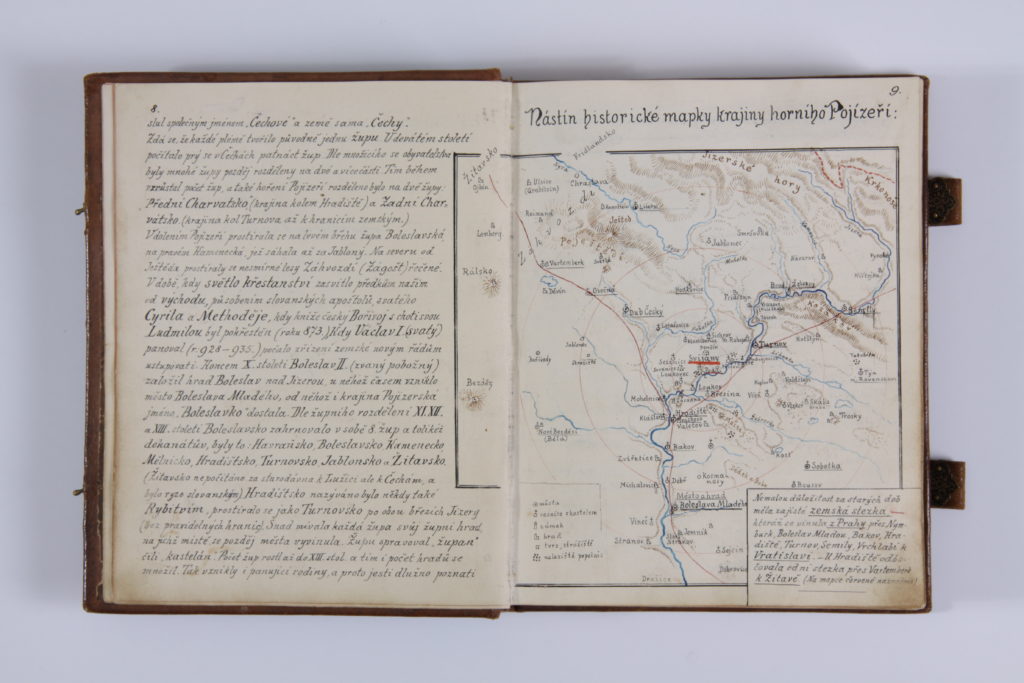 8.
slul společným jménem „Čechové“ a země sama „Čechy“.
Zdá se, že každé plémě tvořilo původně jednu župu. U devátém století
počítalo prý se v Čechách patnáct žup. Dle množícího se obyvatelstva
byly mnohé župy později rozděleny na dvě a více částí. Tím během
vzrůstal počet žup, a také hoření Pojizeří rozděleno bylo na dvě župy.
Přední Charvatsko (krajina kolem Hradiště) a Zadní Char-
vátsko (krajina kol Turnova až k hranicím zemským.)
V dolením Pojizeří prostírala se na levém břehu župa Boleslavská
na pravém Kamenecká, jež sahala až za Jablony. Na severu od
Ještěda prostíraly se nesmírné lesy Záhvozdí (Zagošť) řečené.
V době, kdy světlo křesťanství zasvitlo předkům našim
od východu, působením slovanských apoštolů, svatého
Cyrila a Methoděje, kdy kníže český Bořivoj s chotí svou
Ludmilou byl pokřestěn (roku 873.) Kdy Václav I. (svatý)
panoval (r. 928 – 935.) počalo zřízení zemské novým řádům
ustupovati. Koncem X. století Boleslav II. (zvaný pobožný)
založil hrad Boleslav nad Jizerou, u něhož časem vzniklo
město Boleslava Mladého, od něhož i krajina Pojizerská
jméno „Boleslavko“ dostala. Dle župního rozdělení XI. XII.
a XIII. století Boleslavsko zahrnovalo v sobě 8. žup a tolikéž
dekanátův, byly to: Havraňsko, Boleslavsko, Kamenecko
Mělnicko, Hradištsko, Turnovsko, Jablonsko a Žitavsko.
(Žitavsko nepočítáno za starodávna k Lužici ale k Čechám, a
bylo ryze slovanským) Hradištsko nazýváno bylo někdy také
Rybitvím, prostíralo se jako Turnovsko po obou březích Jizery
(bez pravidelných hranic). Snad mívala každá župa svůj župní hrad
na jichž místě se později města vyvinula. Župu spravoval „župan“
čili „kastelán“. Počet žup rostl až do XIII. stol. a tím i počet hradů se
množil. Tak vznikly i panující rodiny, a proto jesti dlužno poznati
9.
Nástin historické mapky krajiny horního Pojizeří:
Žitavsko
Ojbín
Lemberg
Rálsko
Bezděz
Frýdlandsko
Jizerské hory
Krkonoše
Záhvozdí
Ulsice
(Grabštein)
Chrastava
Liberec
Roimund
Ještěd
Vartemberk
Jablonec
Smržovka
Děvín
Dub Český
Navarov
Brod Železný
Semily
Kozákov
Turnov
Svijany
Loukovec
Loukov
Březina
Mohelnice
Klášter
Hradiště
Valečov
Nové Benátky
(Bělá)
Bakov
Zvířetice
Michalovice
Debř
Kosmonosy
Město a hrad
Boleslava Mladého
Vinec
Jemník
Stránov
Sejcin
Dobrovice
Dražice
Jablonec
Stráziště
Valdštejn
Trosky
Kost
Sobotka
Bzusov
Skála
Týn
n. Rovenskem
města
vesnice s kostelem
zámek
hrad
tvrz, strážiště
naleziště popelnic
Nemalou důležitost za starých dob
měla zajisté zemská stezka,
kteráž se vinula z Prahy přes Nym-
burk, Boleslav Mladou, Bakov, Hra-
diště, Turnov, Semily, Vrchlabí k
Vratislavi. – U Hradiště odbo-
čovala od ní stezka přes Vartemberk
k Žitavě. (Na mapce červeně naznačena)